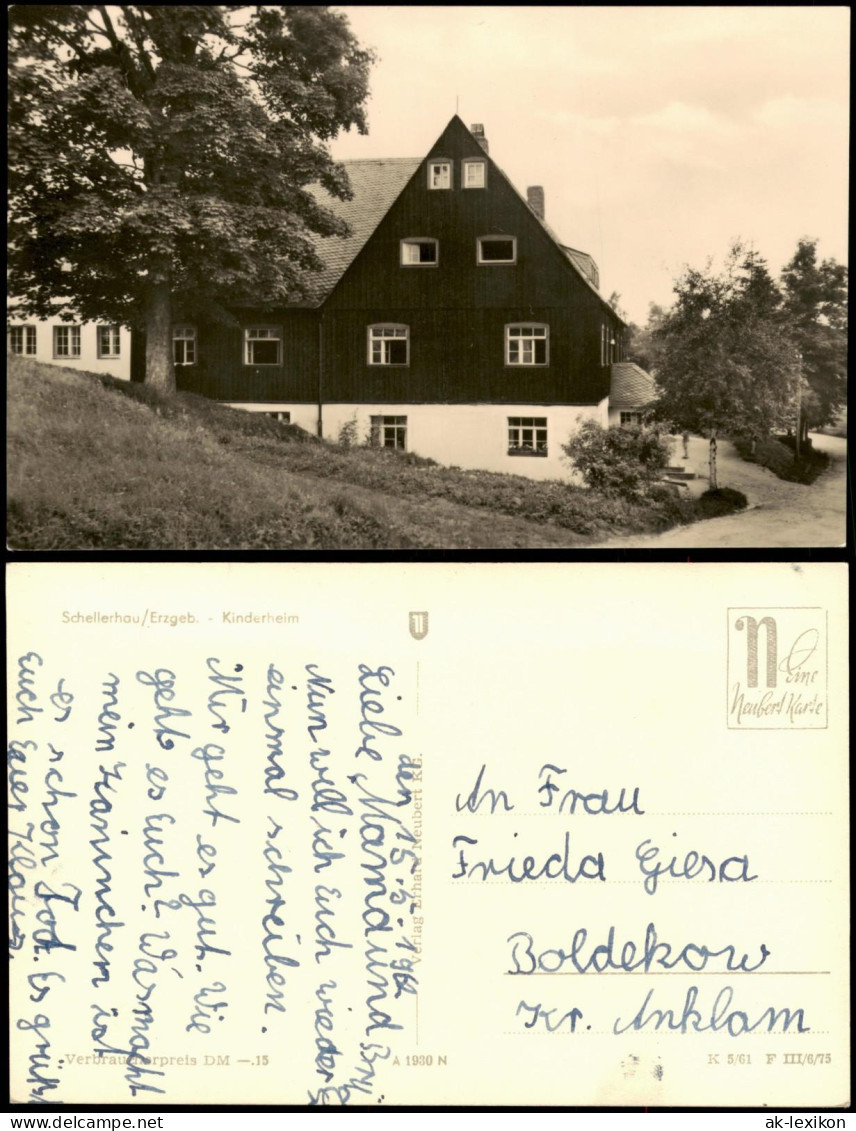 Schellerhau/Erzgeb. - Kinderheim
den 15.5.1962
Liebe Mama und
Nun will ich Euch wieder
einmal schreiben.
Mir geht es gut. Wie
geht es Euch? Was macht
mein Kaninchen ist
es schon Tod. Es grüßt
Euch Euer Klaus.
Verlag Erhard Neubert KG.
N
Eine
Neubert Karte
An Frau
Frieda Giesa
Boldekow
Kr. Anklam
Verbraucherpreis DM —.15
A 1930 N
K 5/61 F III/6/75
ak-lexikon